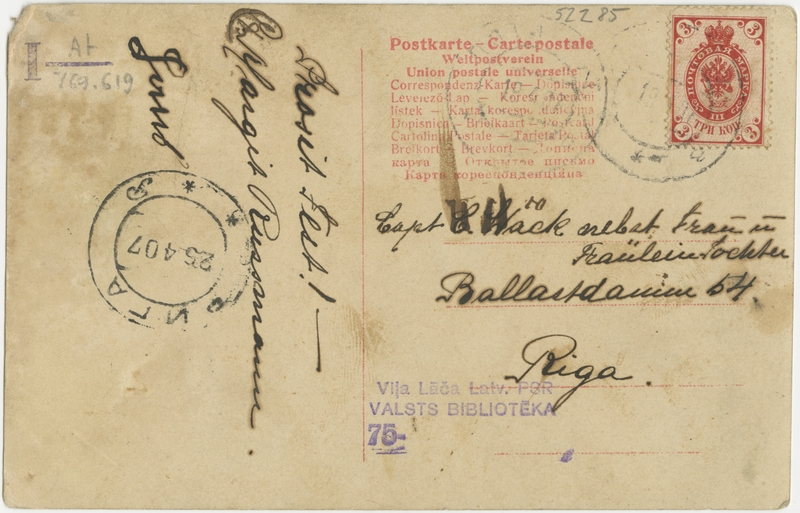 52285
I
At
769.619
Postkarte – Carte postale
Weltpostverein
Union postale universelle
Correspondenz-Karte – Dopisnice
Levelező-Lap –
listek – Karta korespondencyjna
Dopisnica – Briefkaart –
Cartolina Postale – Tarjeta Postal
Brefkort – Brevkort – Дописна
карта – Открытое письмо
Карта кореспонденциина
3 3
ПОЧТОВАЯ МАРКА
III
ТРИ КОП.
3 3
Capt Mack nebst Frau u
Fräulein Tochter
Ballastdamm 54.
Riga.
Vija Lāča Latv. PSR
VALSTS BIBLIOTĒKA
75-
Prosit Fest! —
Margit Russmann.
РИГА
25 4 07